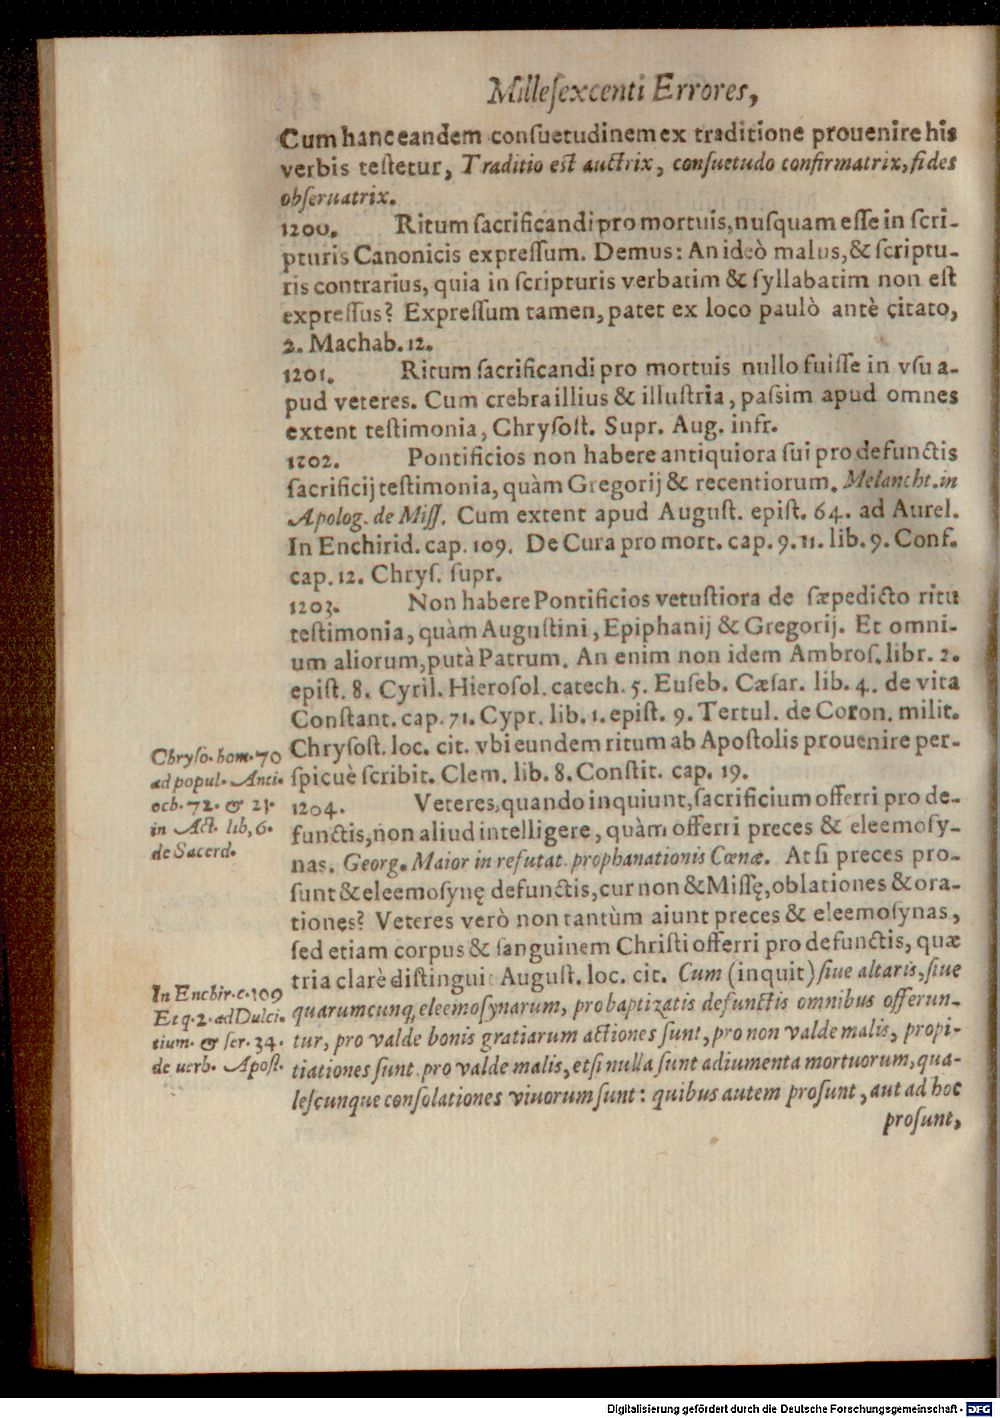 Milleſexcenti Errores,
Cum hanc eandem conſuetudinem ex traditione prouenire his
verbis teſtetur, Traditio eſt auctrix, conſuetudo confirmatrix, fides
obſeruatrix.
1200. Ritum ſacrificandi pro mortuis, nuſquam eſſe in ſcri-
pturis Canonicis expreſſum. Demus: An ideò malus, & ſcriptu-
ris contrarius, quia in ſcripturis verbatim & ſyllabatim non eſt
expreſſus? Expreſſum tamen, patet ex loco paulò antè citato,
2. Machab. 12.
1201. Ritum ſacrificandi pro mortuis nullo fuiſſe in vſu a-
pud veteres. Cum crebra illius & illuſtria, paſsim apud omnes
extent teſtimonia, Chryſoſt. Supr. Aug. infr.
1202. Pontificios non habere antiquiora ſui pro defunctis
ſacrificij teſtimonia, quàm Gregorij & recentiorum. Melancht. in
Apolog. de Miſſ. Cum extent apud Auguſt. epiſt. 64. ad Aurel.
In Enchirid. cap. 109. De Cura pro mort. cap. 9. 11. lib. 9. Conf.
cap. 12. Chryſ. ſupr.
1203. Non habere Pontificios vetuſtiora de ſæpedicto ritu
teſtimonia, quàm Auguſtini, Epiphanij & Gregorij. Et omni-
um aliorum, putà Patrum. An enim non idem Ambroſ. libr. 2.
epiſt. 8. Cyril. Hieroſol. catech. 5. Euſeb. Cæſar. lib. 4. de vita
Conſtant. cap. 71. Cypr. lib. 1. epiſt. 9. Tertul. de Coron. milit.
Chryſoſt. loc. cit. vbi eundem ritum ab Apoſtolis prouenire per-
ſpicuè ſcribit. Clem. lib. 8. Conſtit. cap. 19.
Chryſo. hom. 70
ad popul. Anti-
och. 72. & 21.
in Act. lib, 6.
de Sacerd.
1204. Veteres, quando inquiunt, ſacrificium offerri pro de-
functis, non aliud intelligere, quàm offerri preces & eleemoſy-
nas. Georg. Maior in refutat. prophanationis Cœnæ. At ſi preces pro-
ſunt & eleemoſynę defunctis, cur non & Miſſę, oblationes & ora-
tiones? Veteres verò non tantùm aiunt preces & eleemoſynas,
ſed etiam corpus & ſanguinem Chriſti offerri pro defunctis, quæ
tria clarè diſtinguit Auguſt. loc. cit. Cum (inquit) ſiue altaris, ſiue
quarumcunq; eleemoſynarum, pro baptizatis defunctis omnibus offerun-
tur, pro valde bonis gratiarum actiones ſunt, pro non valde malis, propi-
tiationes ſunt. pro valde malis, etſi nulla ſunt adiumenta mortuorum, qua-
leſcunque conſolationes viuorum ſunt: quibus autem proſunt, aut ad hoc
In Enchir. c. 109
Et q. 2. ad Dulci-
tium. & ſer. 34.
de verb. Apoſt.
proſunt,
Digitalisierung gefördert durch die Deutsche Forschungsgemeinschaft - DFG